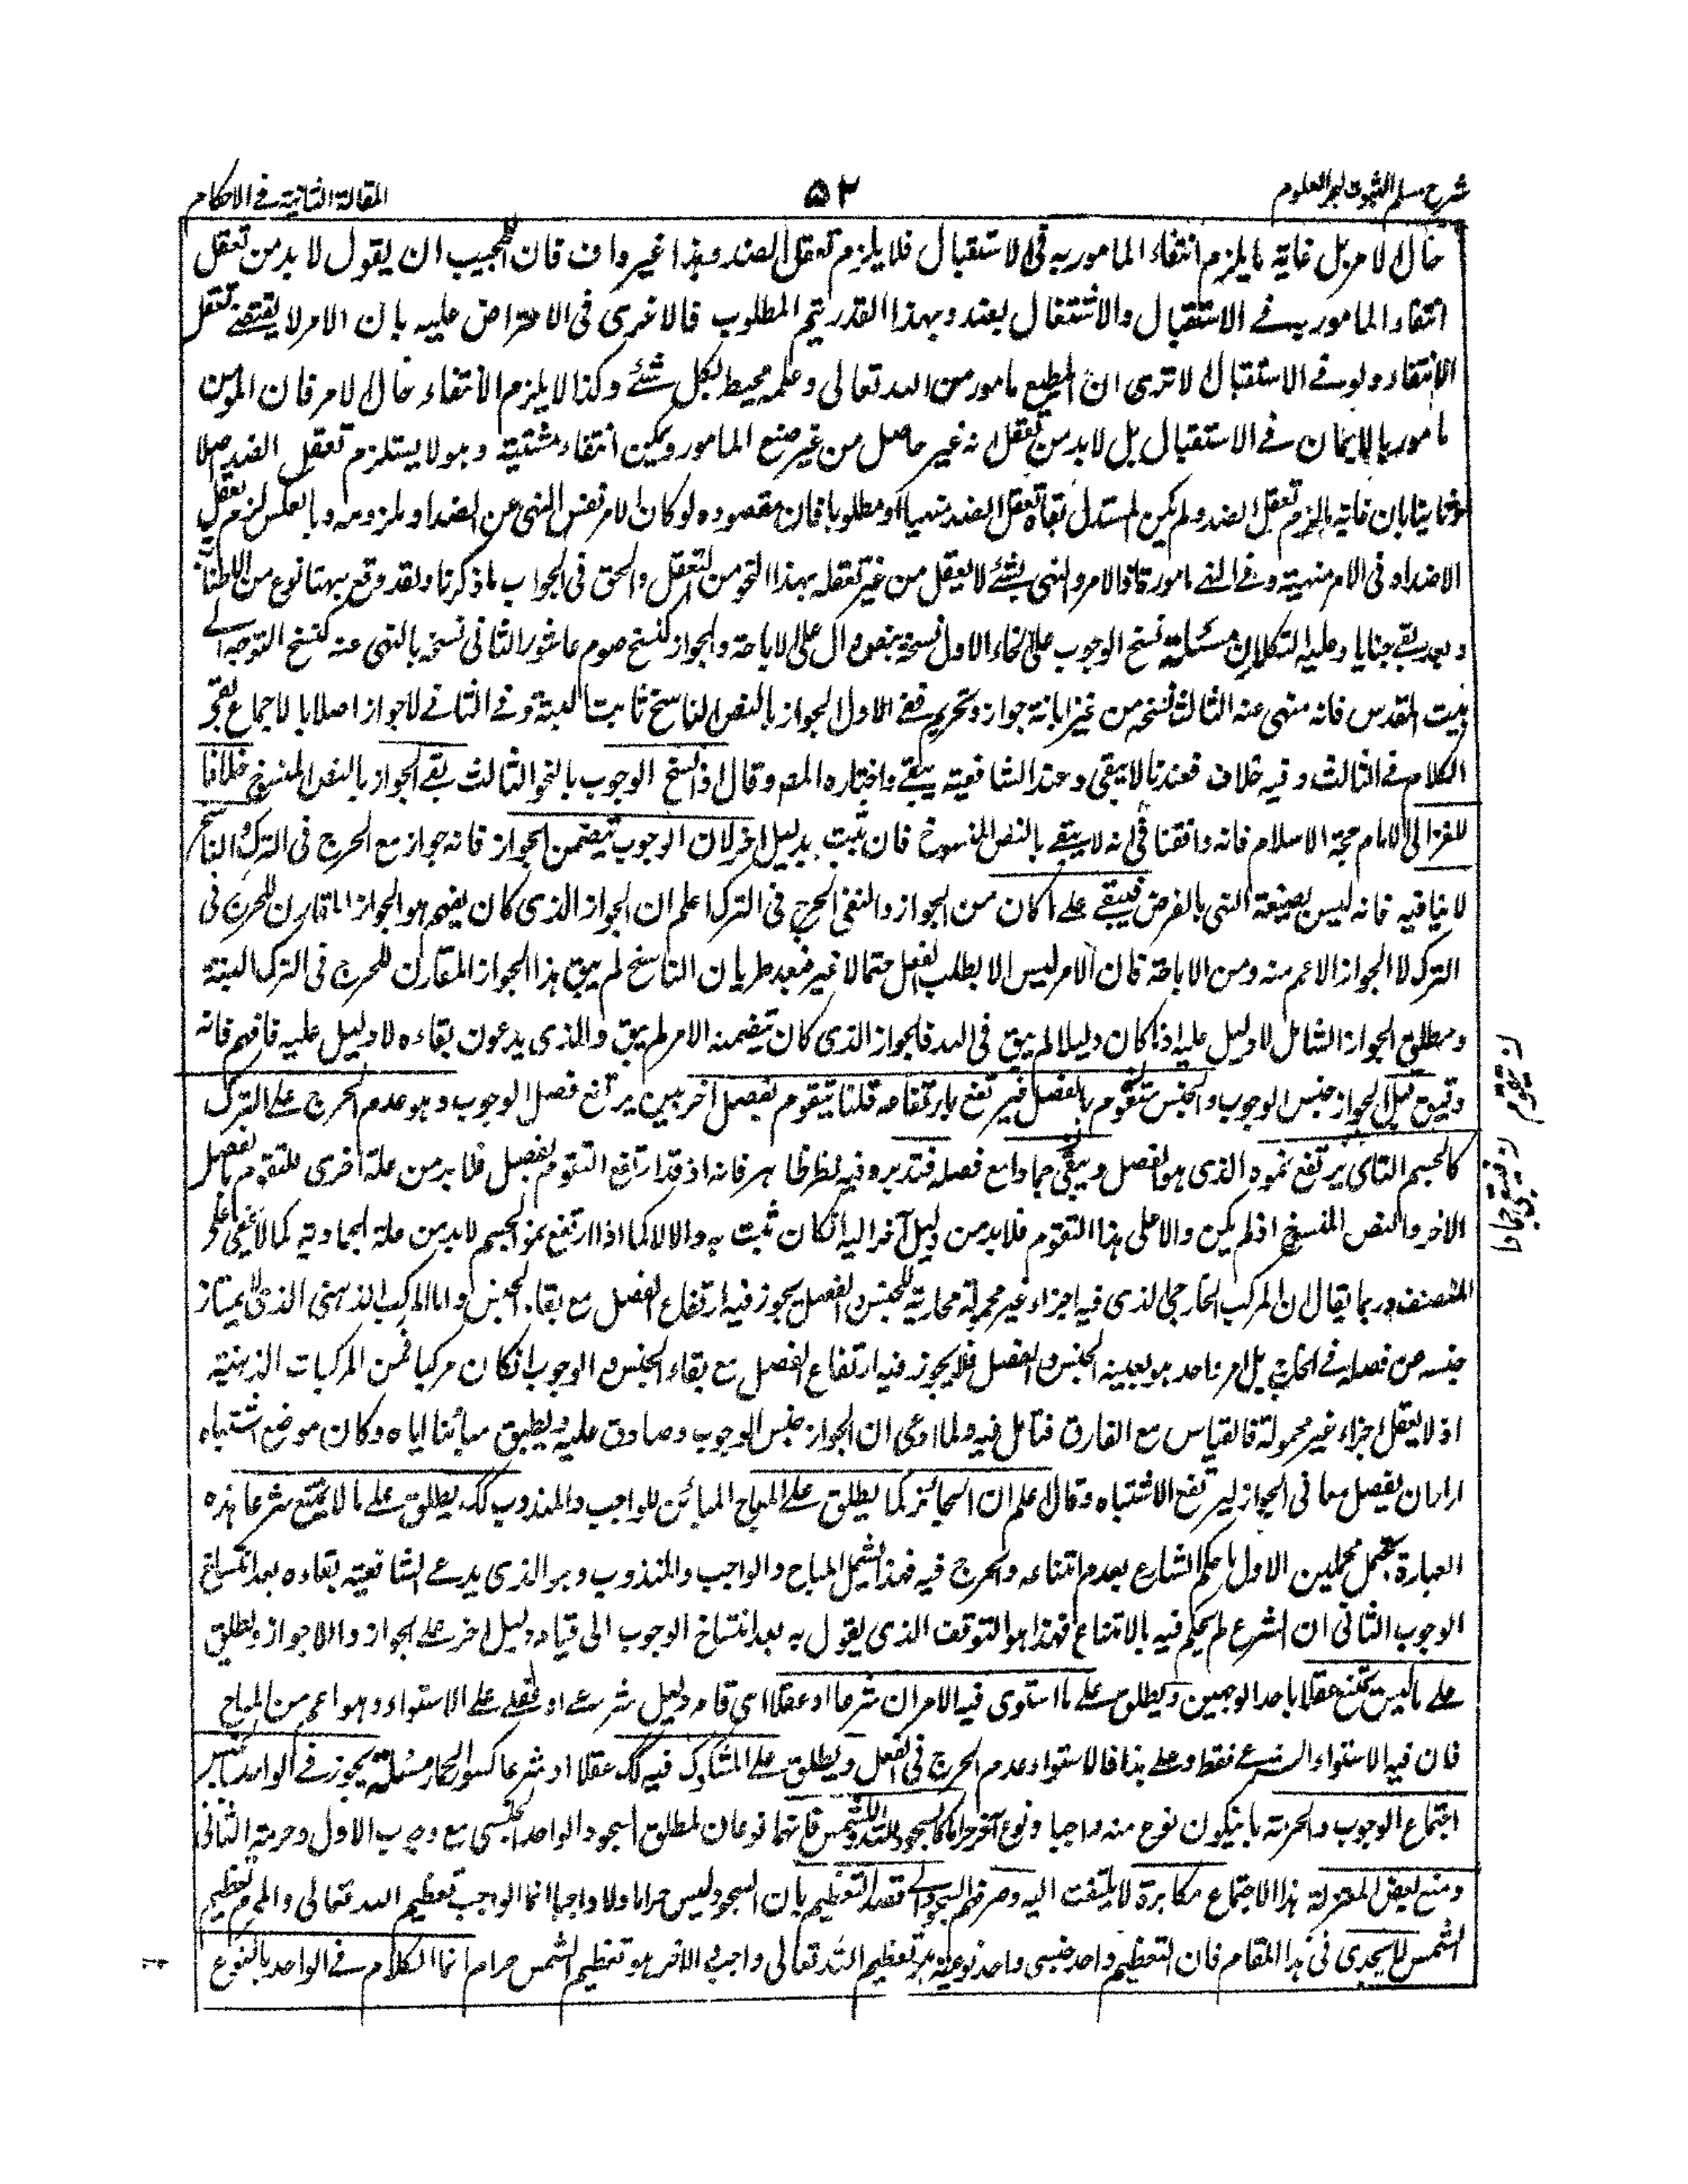 شرح مسلم الثبوت لبحر العلوم
٥٢
المقالة الثانية في الاحكام
حال الامر بل غاية ما يلزم انتفاء المامور به في الاستقبال فلا يلزم تعقل الضد وهذا غير واف فان للمجيب ان يقول لا بد من تعقل
انتفاء المامور به في الاستقبال والاشتغال بضد وبهذا القدر يتم المطلوب فالاحرى في الاعتراض عليه بان الامر لا يقتضي تعقل
الانتفاء ولو في الاستقبال الا ترى ان المطيع مامور من الله تعالى وعلمه محيط بكل شئ وكذا لا يلزم الانتفاء حال الامر فان المؤمن
مامور بالايمان في الاستقبال بل لا بد من تعقل انه غير حاصل من غير صنع المامور ويمكن انتفاء مشيته وهو لا يستلزم تعقل الضد اصلا
بان غاية ما لزم تعقل الضد ولم يكن المستدل تعقل الضد منهيا او مطلوبا فان مقصوده لو كان الامر نفس النهي عن الضد او ملزومه وبالعكس لزم تعقل
الاضداد في الامر منهية وفي النهي مامورة اذ الامر والنهي بشئ لا يعقل من غير تعقله بهذا النحو من التعقل والحق في الجواب ما ذكرنا ولقد وقع ههنا نوع من الاطناب
وبعد بقي خبايا وعليه التكلان مسئلة نسخ الوجوب على انحاء الاول نسخه بنص دال على الاباحة والجواز كنسخ صوم عاشورا الثاني نسخه بالنهي عنه كنسخ التوجه الى
بيت المقدس فانه منهي عنه الثالث نسخه من غير ابانة جواز وتحريم ففي الاول الجواز بالنص الناسخ ثابت البتة وفي الثاني لا جواز اصلا بالاجماع بقي
الكلام في الثالث وفيه خلاف فعندنا لا يبقى وعند الشافعية يبقى واختاره المصـ وقال اذا نسخ الوجوب بالنحو الثالث بقي الجواز بالنص المنسوخ خلافا
للغزالي الامام حجة الاسلام فانه وافقنا في انه لا يبقى بالنص المنسوخ فان ثبت بدليل اخر لان الوجوب يتضمن الجواز فانه جواز مع الحرج في الترك والناسخ
لا ينافيه فانه ليس بصيغة النهي بالفرض فيبقى على ما كان من الجواز وانتفى الحرج في الترك اعلم ان الجواز الذي كان يفهم هو الجواز المقارن للحرج في
الترك لا الجواز الاعم منه ومن الاباحة فان الامر ليس الا بطلب الفعل حتما لا غير فبعد طريان الناسخ لم يبق هذا الجواز المقارن للحرج في الترك البتة
ومطلق الجواز الشامل لا دليل عليه اذ ما كان دليلا لم يبق في اليد فالجواز الذي كان يتضمنه الامر لم يبق والذي يدعون بقاءه لا دليل عليه فافهم فانه
دقيق قيل الجواز جنس الوجوب والجنس يتقوم بالفصل فيرتفع بارتفاعه قلنا يتقوم بفصل اخر حين يرتفع فصل الوجوب وهو عدم الحرج على الترك
كالجسم النامي يرتفع نموه الذي هو الفصل ويبقى جمادا مع فصله فتدبر وفيه نظر ظاهر فانه اذ قد ارتفع التقوم بفصل فلا بد من علة اخرى للتقوم بالفصل
الاخر والنص المنسوخ اذ لم يكن دالا على هذا التقوم فلا بد من دليل آخر اليه انكان ثبت به والا لا كما اذا ارتفع نمو الجسم لا بد من علة الجمادية كما لا يخفى على
المنصف وربما يقال ان المركب الخارجي الذي فيه اجزاء غير محمولة محاذية للجنس والفصل يجوز فيه ارتفاع الفصل مع بقاء الجنس واما المركب الذهني الذي لا يمتاز
جنسه من فصله في الخارج بل امر واحد هو بعينه الجنس والفصل فلا يجوز فيه ارتفاع الفصل مع بقاء الجنس والوجوب انكان مركبا فمن المركبات الذهنية
اذ لا يعقل اجزاء غير محمولة فالقياس مع الفارق فتامل فيه ولما ادعى ان الجواز جنس الوجوب وصادق عليه ويطبق مبائنا اياه وكان موضع اشتباه
اراد ان يفصل معاني الجواز ليرتفع الاشتباه وقال اعلم ان الجائز كما يطلق على المباح المبائن للواجب والمندوب كك يطلق على ما لا يمتنع شرعا هذه
العبارة تحتمل محملين الاول ما حكم الشارع بعدم امتناعه والحرج فيه فهذا يشمل المباح والواجب والمندوب وهو الذي يدعى الشافعية بقاءه بعد انتساخ
الوجوب الثاني ان الشرع لم يحكم فيه بالامتناع فهذا هو التوقف الذي يقول به بعد انتساخ الوجوب الى قيام دليل اخر على الجواز واللاجواز ويطلق
على ما ليس يمتنع عقلا باحد الوجهين ويطلق على ما استوى فيه الامران شرعا او عقلا اي قام دليل شرعي او عقلي على الاستواء وهو اعم من المباح
فان فيه الاستواء الشرعي فقط وعلى هذا فالاستواء عدم الحرج في الفعل ويطلق على المشكوك فيه كك عقلا او شرعا كسور الحمار مسئلة يجوز في الواحد بالجنس
اجتماع الوجوب والحرمة بان يكون نوع منه واجبا ونوع آخر حراما كالسجود لله وللشمس فانهما نوعان لمطلق السجود الواحد الجنسي مع وجوب الاول وحرمة الثاني
ومنع بعض المعتزلة هذا الاجتماع مكابرة لا يلتفت اليه وصرفهم السجود الى قصد التعظيم بان السجود ليس حراما ولا واجبا انما الواجب تعظيم الله تعالى والمحرم تعظيم
الشمس لا يجدي في هذا المقام فان التعظيم واحد جنسي واحد نوعيه هو تعظيم الله تعالى واجب والاخر هو تعظيم الشمس حرام انما الكلام في الواحد بالنوع